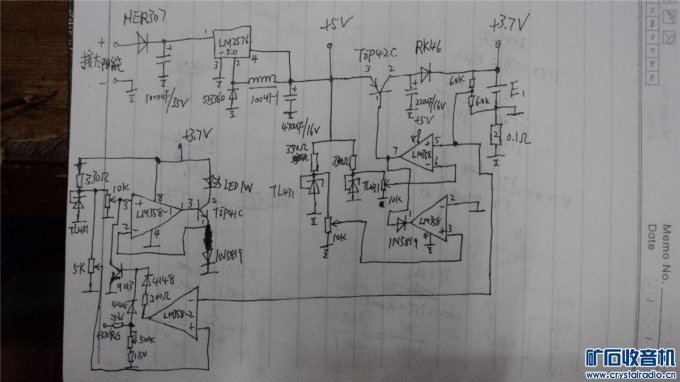 HER307
LM2576
-5.0
接太阳能
1000uF/35V
SB360
100uH
470uF/16V
+5V
TIP42C
RK46
+3.7V
220uF/16V
+5V
68K
E1
0.1Ω
+3.7V
330Ω
TL431
10K
LM358-1
LED 1W
TIP41C
1N5819
5K
9013
4148
200Ω
LM358-2
50K
15K
330Ω
TL431
10K
330Ω
TL431
10K
LM358
1N5819
LM358
Memo No.
Date
矿石收音机
www.crystalradio.cn